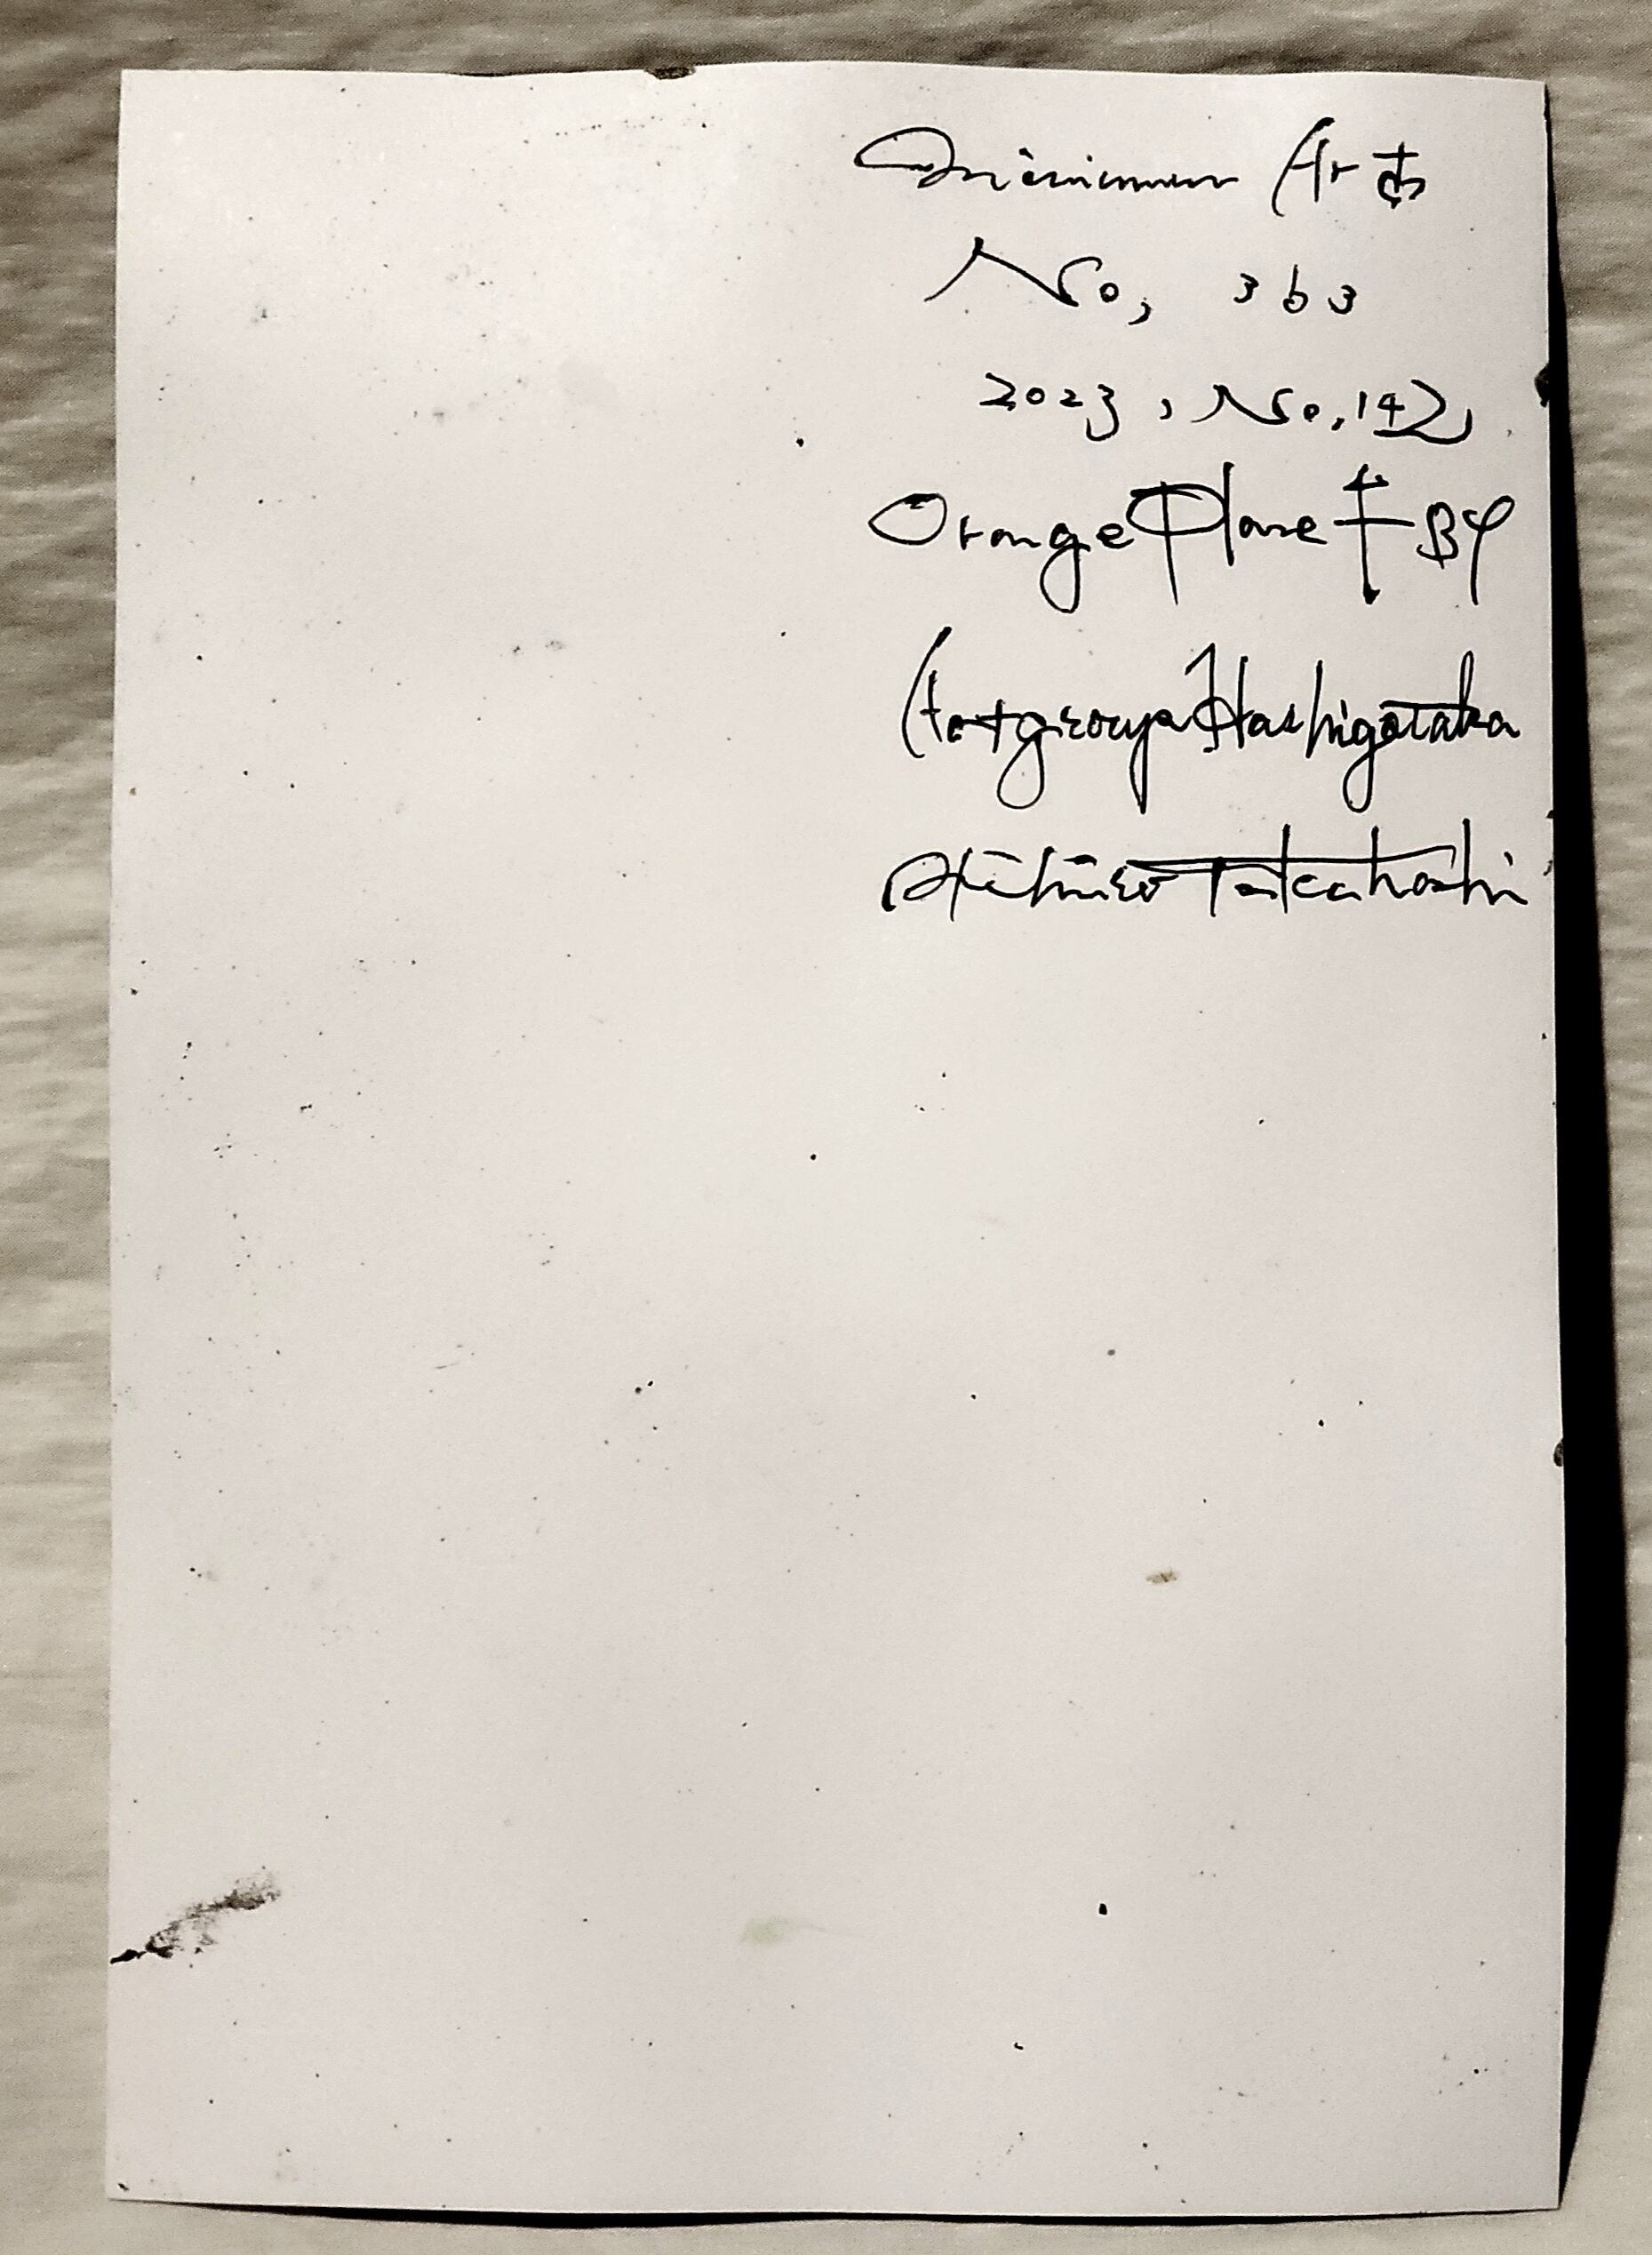 Minimum Art
No, 363
2023, No, 142
Orange Plane
Hashigotaka
Akihiro Takahashi